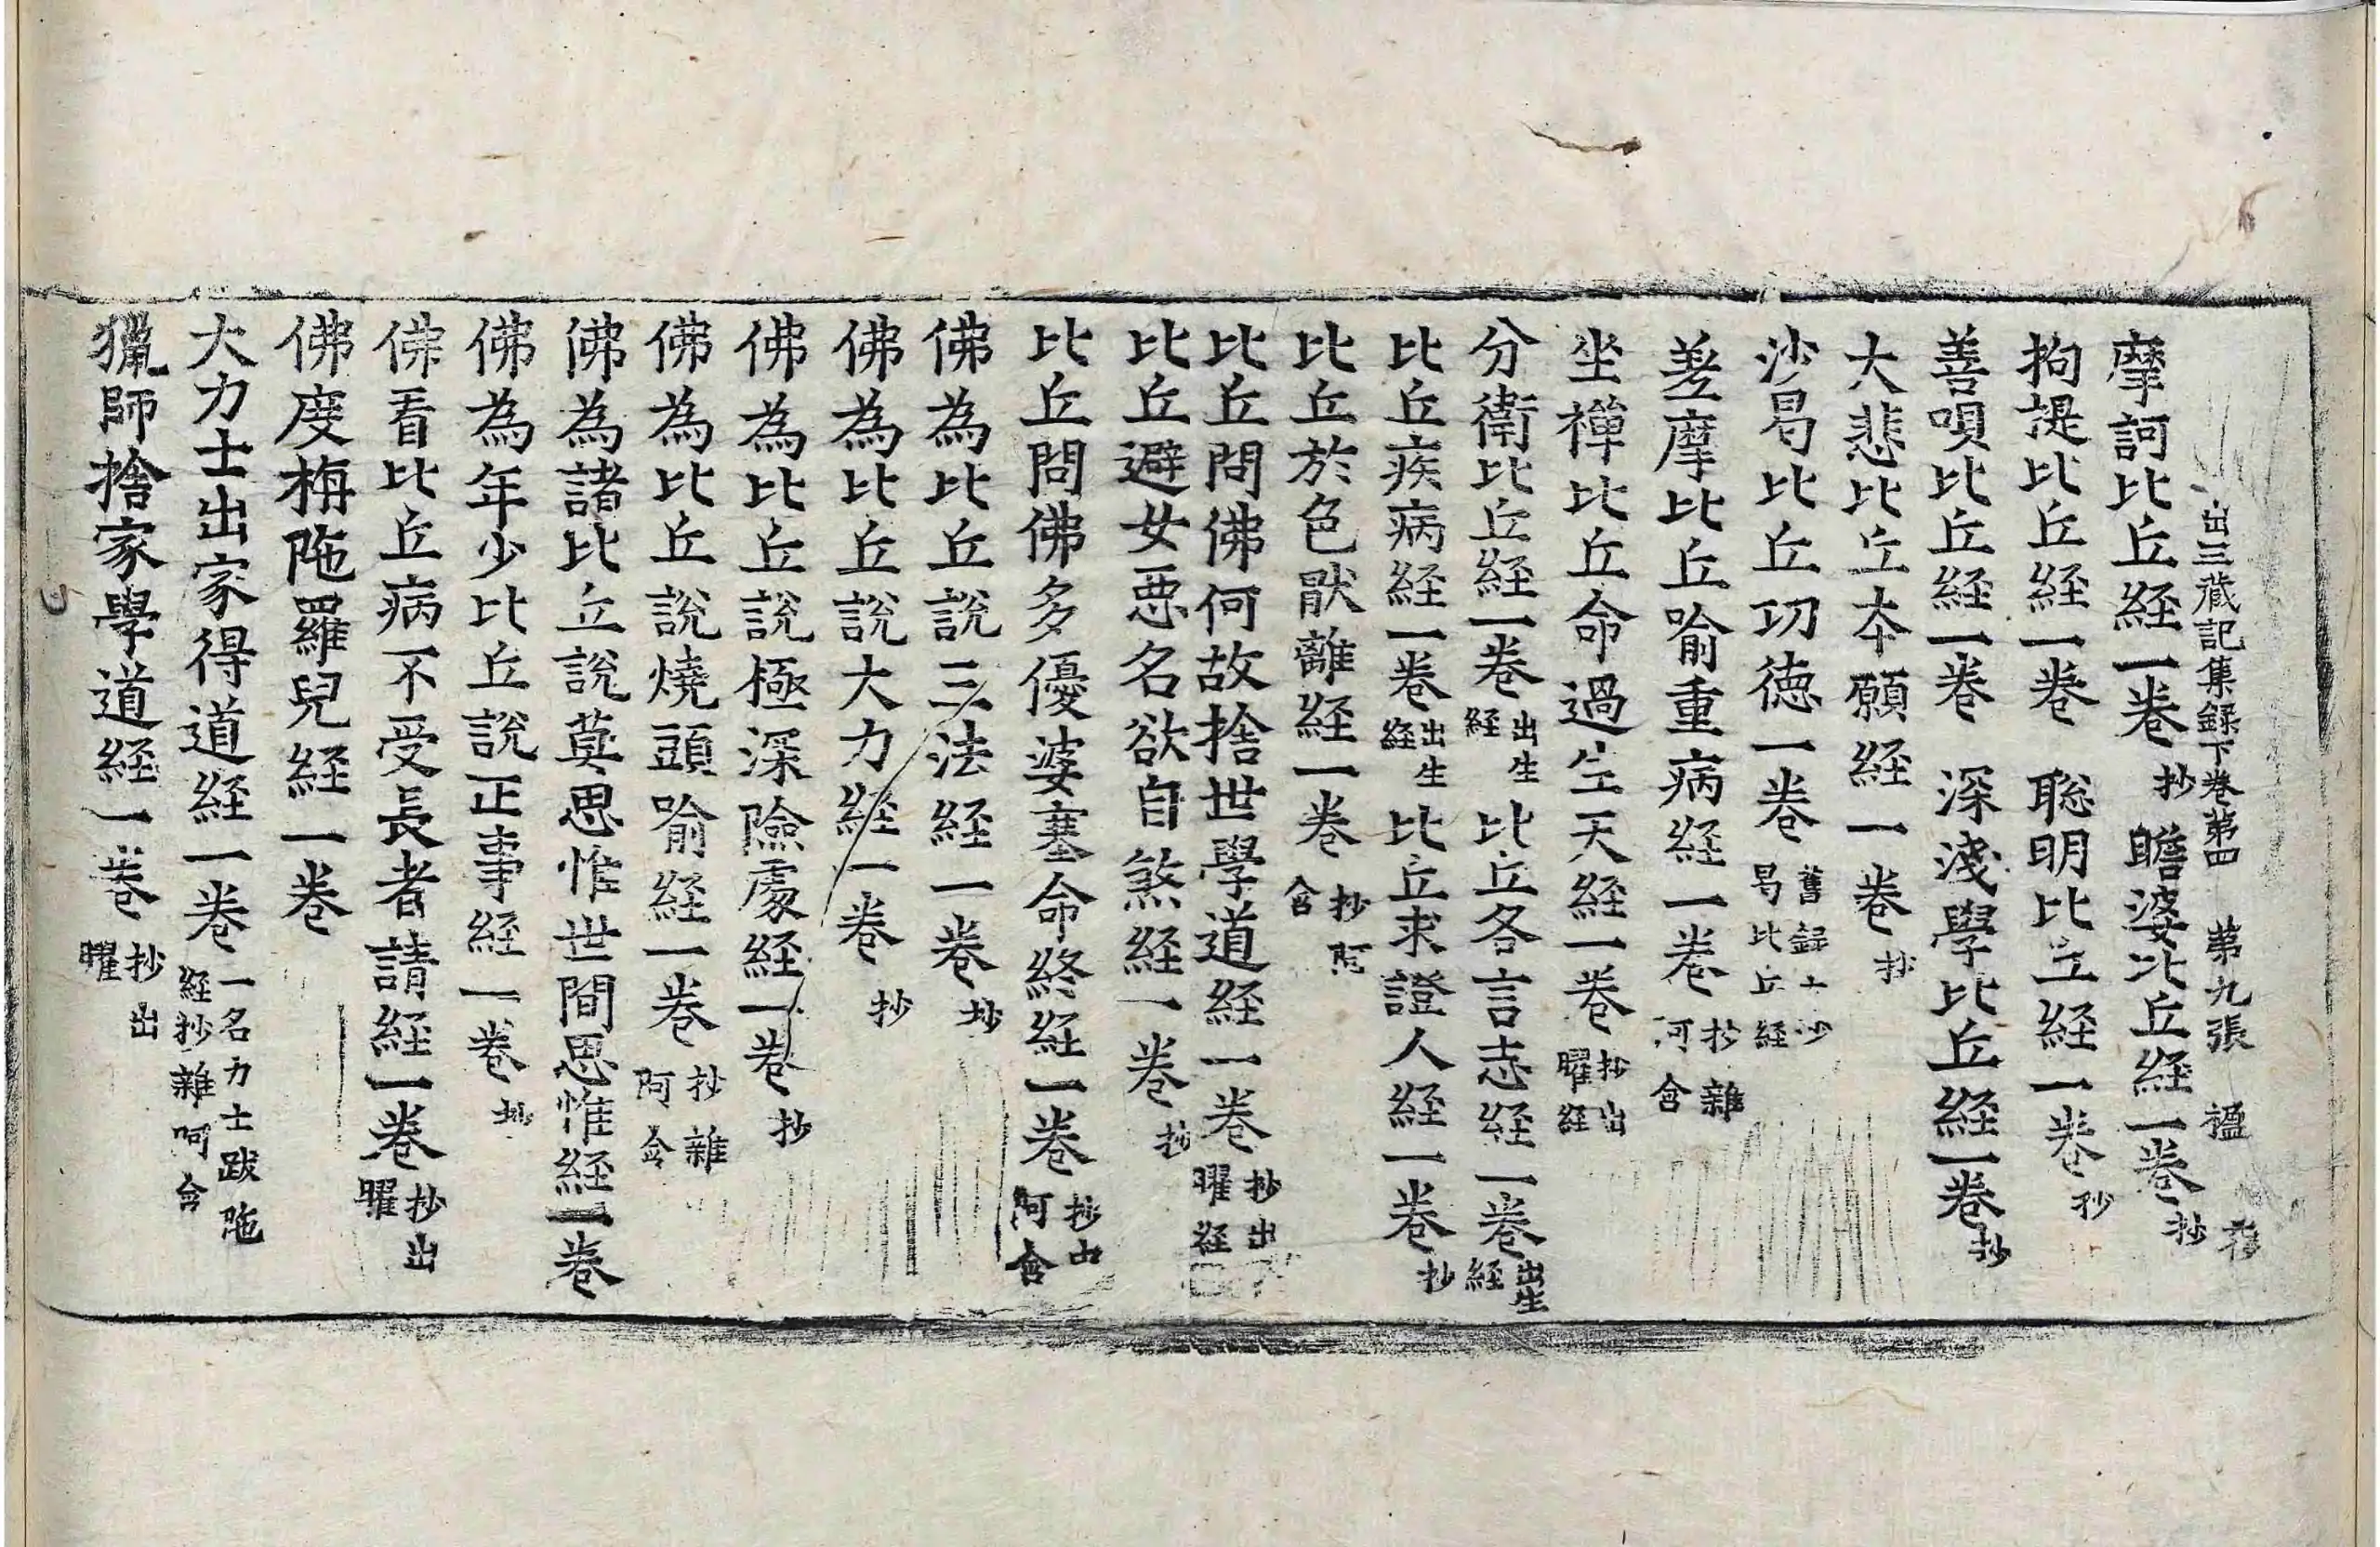 出三蔵記集録下卷第四 第九張 楹
摩訶比丘経一卷抄 瞻婆比丘経一卷抄
拘提比丘経一卷 聡明比丘経一卷抄
善唄比丘経一卷 深淺學比丘経一卷抄
大悲比丘夲願経一卷抄
沙曷比丘功徳一卷舊録云沙曷比丘経
差摩比丘喻重病経一卷抄雜阿含
坐禪比丘命過生天経一卷抄出曜経
分衛比丘経一卷出生経 比丘各言志経一卷出生経
比丘疾病経一卷出生経 比丘求證人経一卷抄
比丘於色猒離経一卷抄阿含
比丘問佛何故捨世學道経一卷抄出曜経
比丘避女惡名欲自煞経一卷抄
比丘問佛多優婆塞命終経一卷抄中阿含
佛為比丘說三法経一卷抄
佛為比丘說大力経一卷抄
佛為比丘說極深險處経一卷抄
佛為比丘說燒頭喻経一卷抄雜阿含
佛為諸比丘說莫思惟世間思惟経一卷
佛為年少比丘說正事経一卷抄
佛看比丘病不受長者請経一卷抄出曜
佛度栴陁羅兒経一卷
大力士出家得道経一卷一名力士跋陁経抄雜阿含
獵師捨家學道経一卷抄出曜